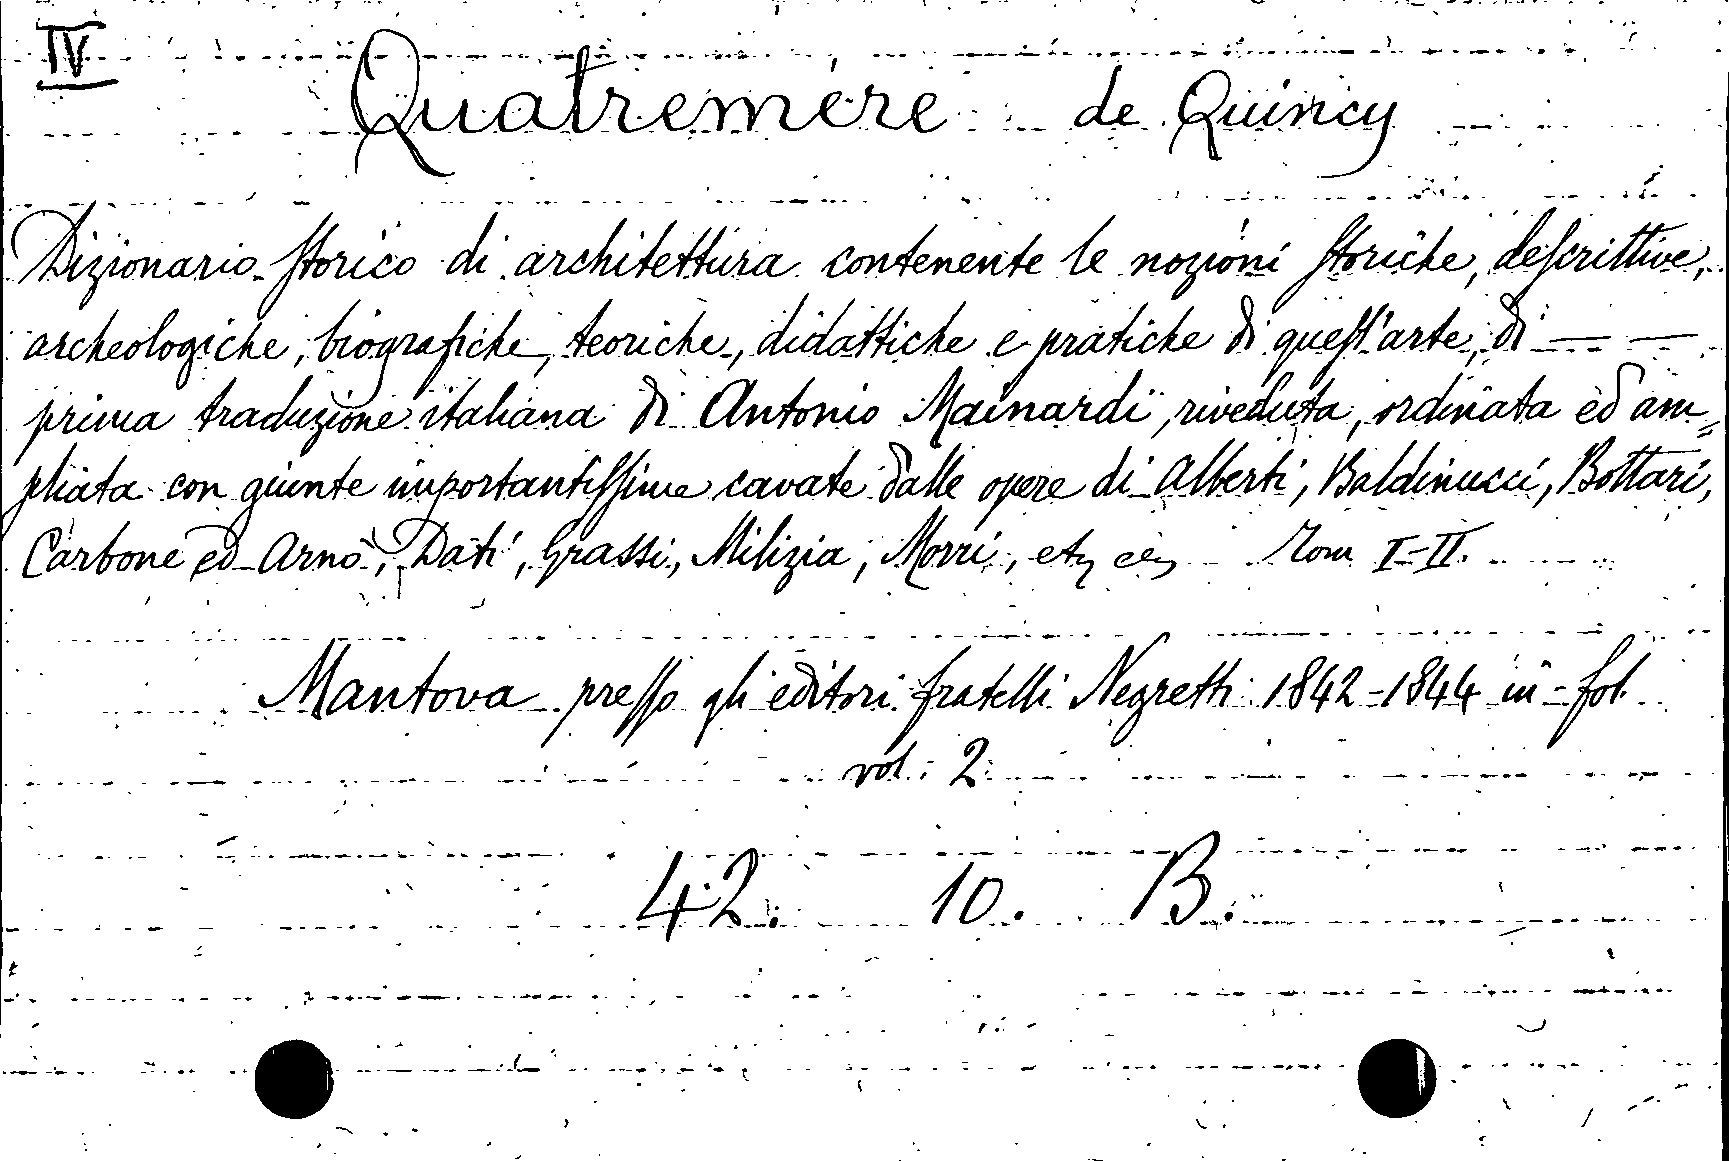 IV
Quatremère de Quincy
Dizionario storico di architettura contenente le nozioni storiche, descrittive,
archeologiche, biografiche, teoriche, didattiche e pratiche di quest'arte, di — —
prima traduzione italiana di Antonio Mainardi, riveduta, ordinata ed am=
pliata con giunte importantissime cavate dalle opere di Alberti, Baldinucci, Bottari,
Carbone ed Arnò, Dati, Grassi, Milizia, Morri, etc, etc, Tom I-II.
Mantova presso gli editori fratelli Negretti 1842-1844 in-fol.
vol. 2
42. 10. B.